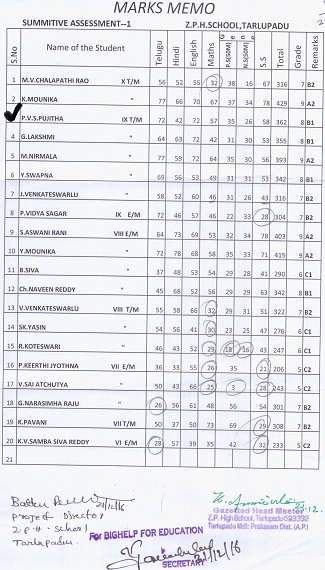 MARKS MEMO
SUMMITIVE ASSESSMENT--1 Z.P.H.SCHOOL,TARLUPADU
S.No Name of the Student Telugu Hindi English Maths Gene P.S(50M) N.S(50M) S.S Total Grade Remarks
1 M.V.CHALAPATHI RAO X T/M 56 52 55 32 38 16 67 316 7 B2
2 K.MOUNIKA " 77 66 70 67 37 34 78 429 9 A2
3 P.V.S.PUJITHA IX T/M 72 42 72 57 35 26 58 362 8 B1
4 G.LAKSHMI " 64 63 72 42 31 30 53 355 8 B1
5 M.NIRMALA " 77 59 72 64 35 30 56 393 9 A2
6 Y.SWAPNA " 69 56 53 49 31 31 53 342 8 B1
7 J.VENKATESWARLU " 58 52 60 46 31 26 43 316 7 B2
8 P.VIDYA SAGAR IX E/M 72 46 57 46 22 33 28 304 7 B2
9 S.ASWANI RANI VIII E/M 64 73 69 53 32 34 78 403 9 A2
10 Y.MOUNIKA " 72 78 68 58 35 33 71 415 9 A2
11 B.SIVA " 37 48 53 54 29 28 41 290 6 C1
12 Ch.NAVEEN REDDY " 45 68 52 56 29 29 63 342 8 B1
13 V.VENKATESWARLU VIII T/M 55 58 66 32 29 31 51 322 7 B2
14 SK.YASIN " 54 56 41 30 23 25 47 276 6 C1
15 R.KOTESWARI " 46 43 52 29 18 16 43 247 6 C1
16 P.KEERTHI JYOTHNA VII E/M 36 33 55 26 35 21 206 5 C2
17 V.SAI ATCHUTYA " 50 43 66 25 3 28 243 5 C2
18 G.NARASIMHA RAJU " 26 56 61 48 56 54 301 7 B2
19 K.PAVANI VII T/M 50 37 50 73 69 29 308 7 B2
20 K.V.SAMBA SIVA REDDY VI E/M 28 57 39 35 42 32 233 5 C2
21
21/12/16
Project Director
Z.P.H. School
Tarlupadu.
For BIGHELP FOR EDUCATION
21/12/16
SECRETARY
Gazetted Head Master
Z.P. High School, Tarlupadu-523332
Tarlupadu Mdl: Prakasam Dist. (A.P.)